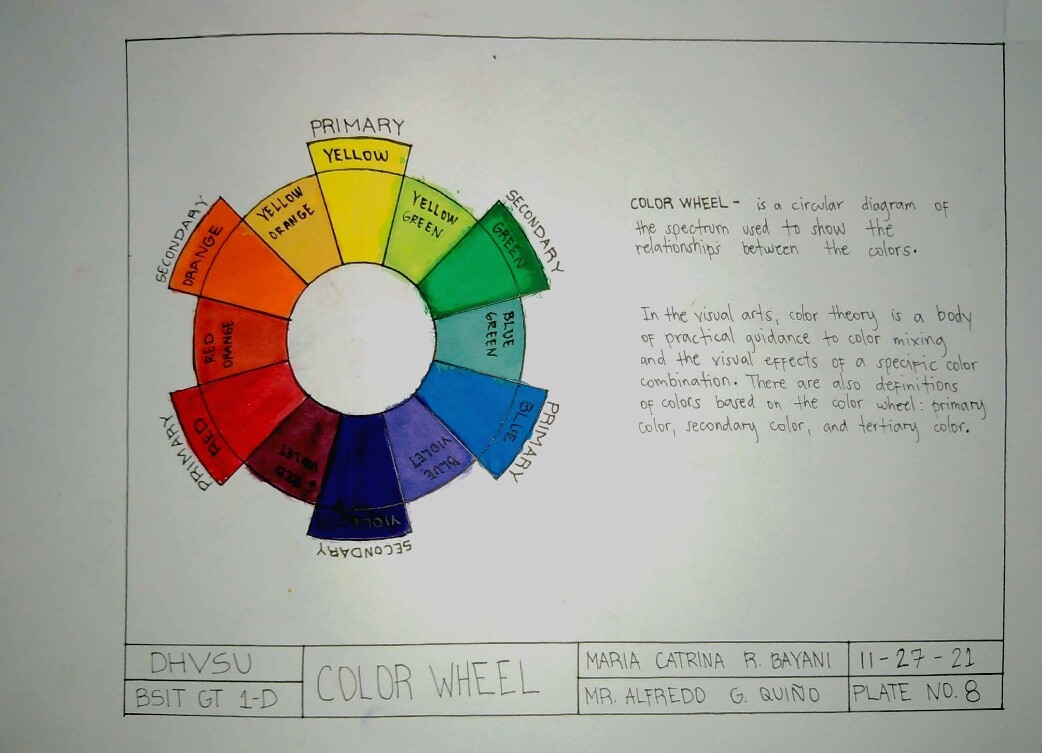 PRIMARY
YELLOW
YELLOW
ORANGE
YELLOW
GREEN
SECONDARY
ORANGE
SECONDARY
GREEN
RED
ORANGE
BLUE
GREEN
PRIMARY
RED
PRIMARY
BLUE
RED
VIOLET
BLUE
VIOLET
VIOLET
SECONDARY
COLOR WHEEL - is a circular diagram of
the spectrum used to show the
relationships between the colors.
In the visual arts, color theory is a body
of practical guidance to color mixing
and the visual effects of a specific color
combination. There are also definitions
of colors based on the color wheel: primary
color, secondary color, and tertiary color.
DHVSU
BSIT GT 1-D
COLOR WHEEL
MARIA CATRINA R. BAYANI
MR. ALFREDO G. QUIÑO
11-27-21
PLATE NO. 8